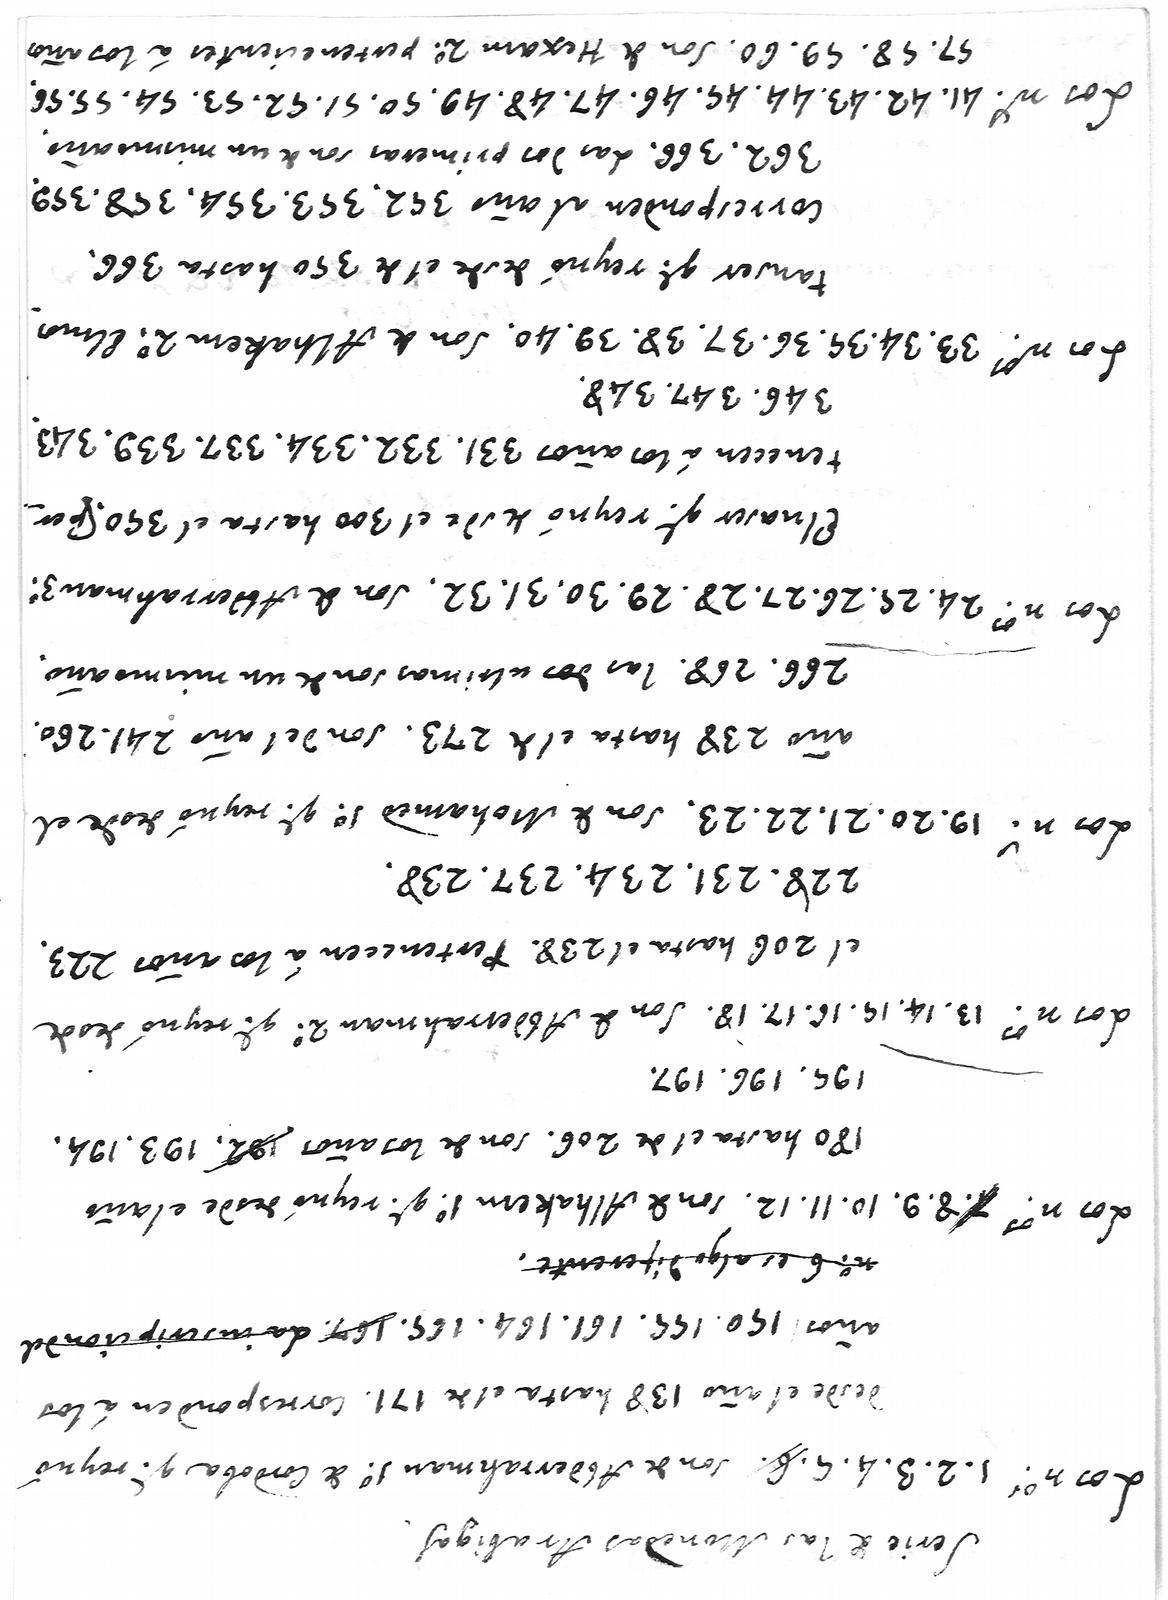 Serie de las Monedas Arabigas.
Los nos. 1. 2. 3. 4. 5. 6. son de Abderrahman 1º. de Cordoba, qe. reynó
desde el año 138 hasta el de 171. Corresponden á los
años 150. 155. 161. 164. 165. 167. La inscripcion del
nº. 6 es algo diferente.
Los nos. 7. 8. 9. 10. 11. 12. son de Alhakem 1º. qe. reynó desde el año
180 hasta el de 206. son de los años 192. 193. 194.
195. 196. 197.
Los nos. 13. 14. 15. 16. 17. 18. son de Abderrahman 2º. qe. reynó desde
el 206 hasta el 238. Pertenecen á los años 223.
228. 231. 234. 237. 238.
Los ns. 19. 20. 21. 22. 23. son de Mohamed 1º. qe. reynó desde el
año 238 hasta el de 273. son del año 241. 260.
266. 268. las dos ultimas son de un mismo año.
Los nos. 24. 25. 26. 27. 28. 29. 30. 31. 32. son de Abderrahman 3º.
Elnaser qe. reynó desde el 300 hasta el 350. Per-
tenecen á los años 331. 332. 334. 337. 339. 343.
346. 347. 348.
Los nos. 33. 34. 35. 36. 37. 38. 39. 40. son de Alhakem 2º. Elmos
tanser qe. reynó desde el de 350 hasta 366.
Corresponden al año 352. 353. 354. 358. 359.
362. 366. Las dos primeras son de un mismo año.
Los ns. 41. 42. 43. 44. 45. 46. 47. 48. 49. 50. 51. 52. 53. 54. 55. 56.
57. 58. 59. 60. son de Hexam 2º. pertenecientes á los años